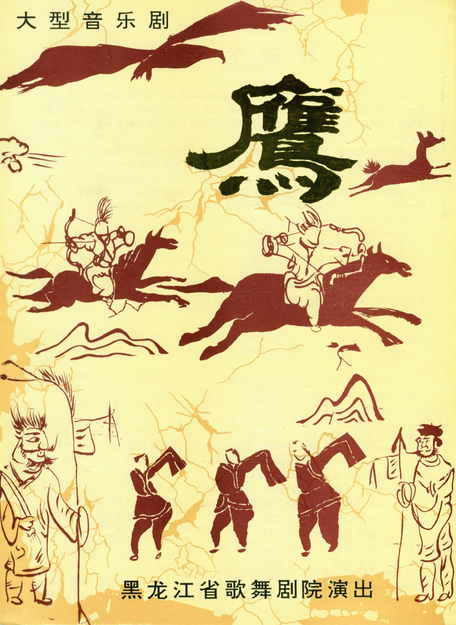 大型音乐剧
鹰
黑龙江省歌舞剧院演出